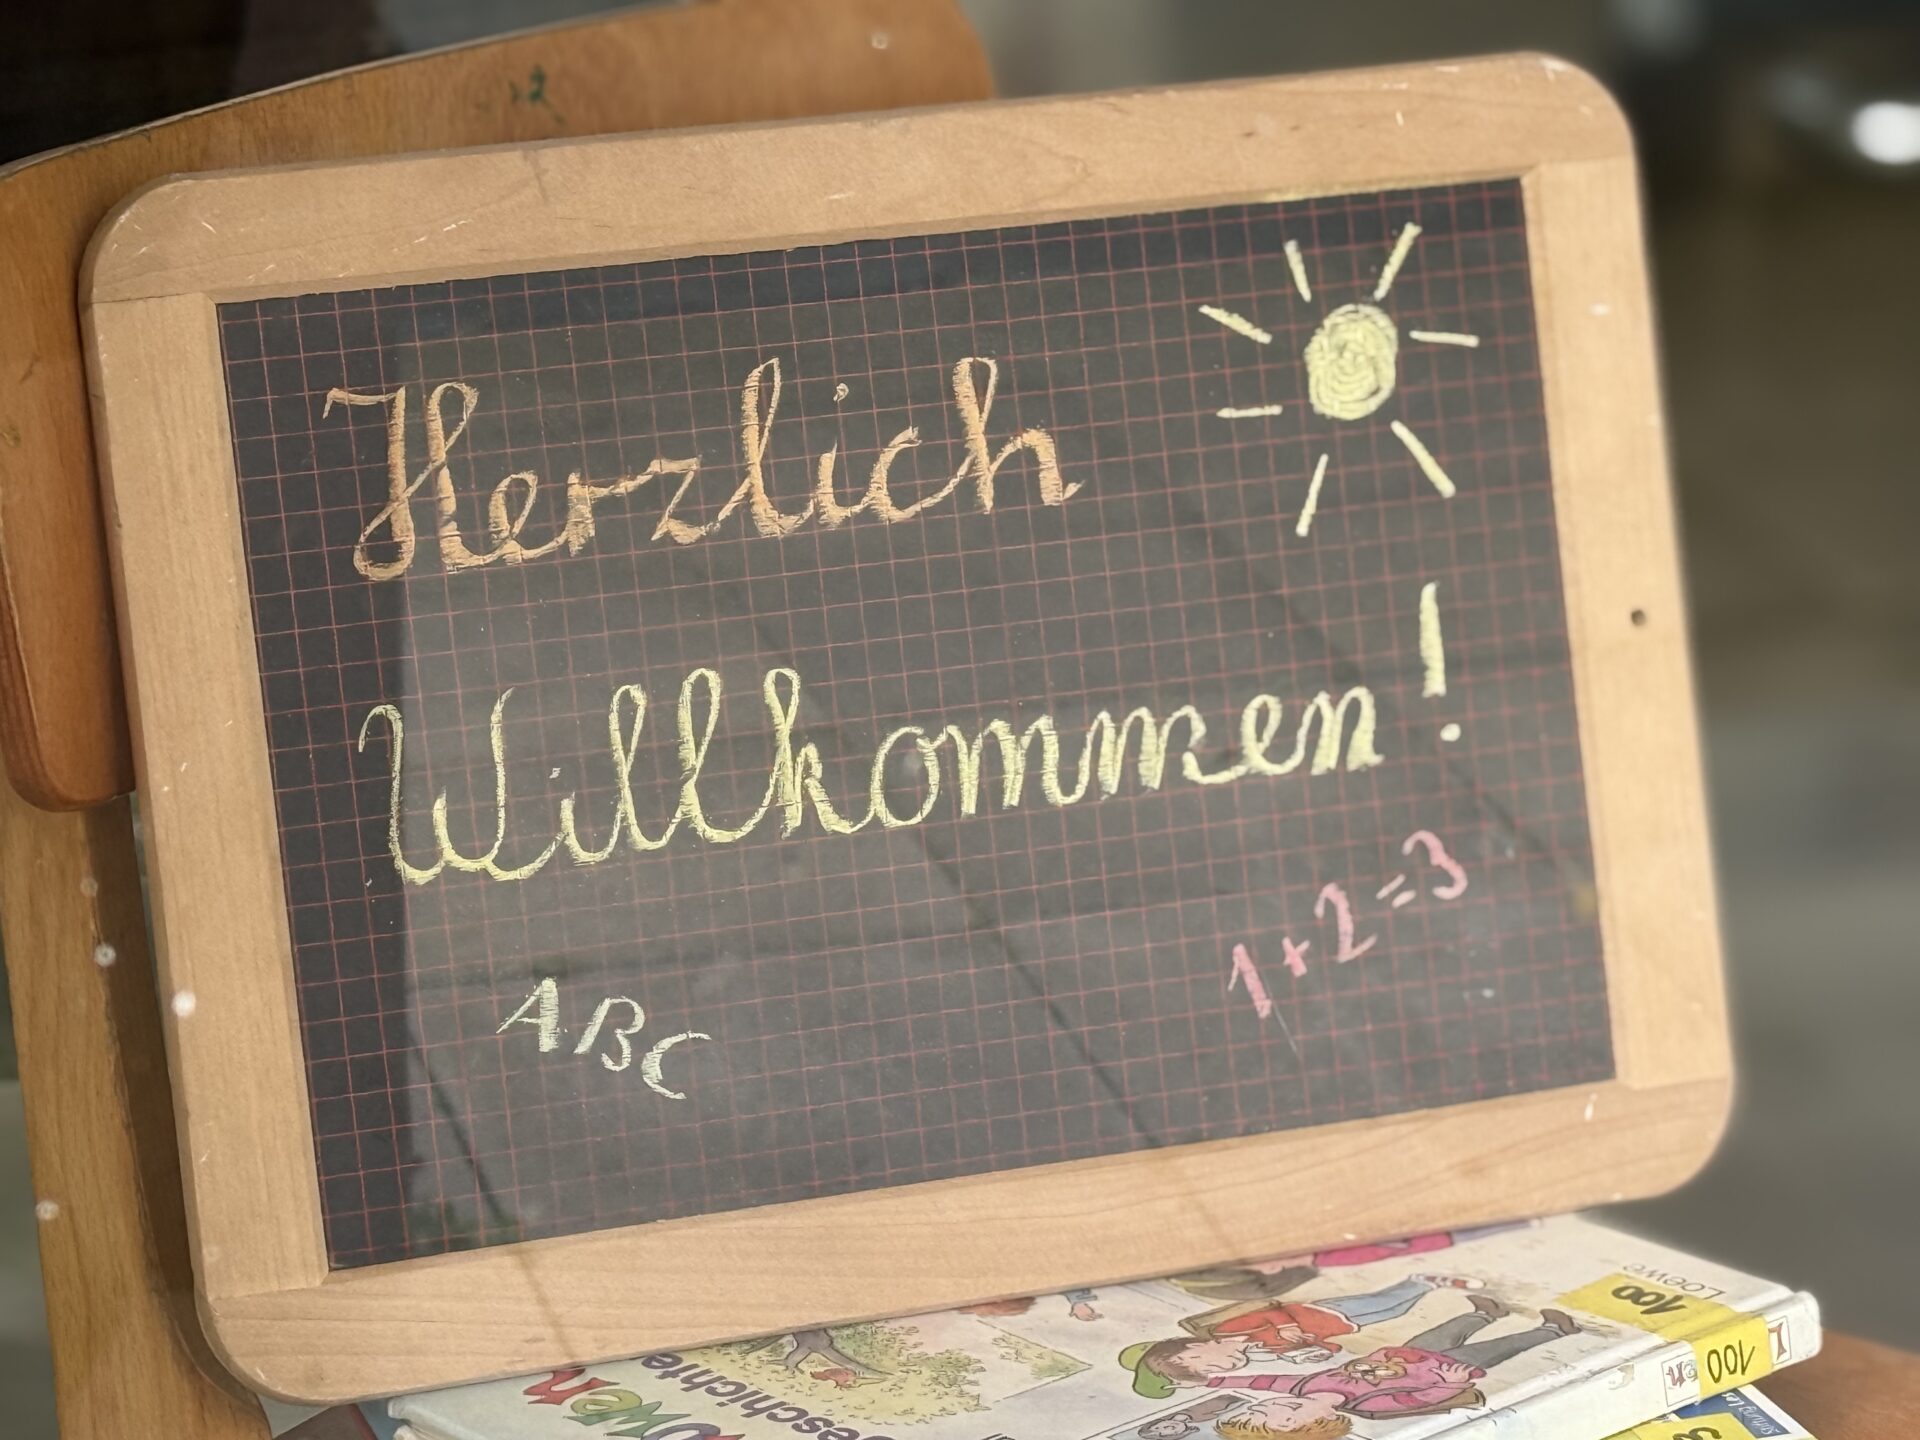 Herzlich
Willkommen!
1+2=3
ABC
Loewe
100
100